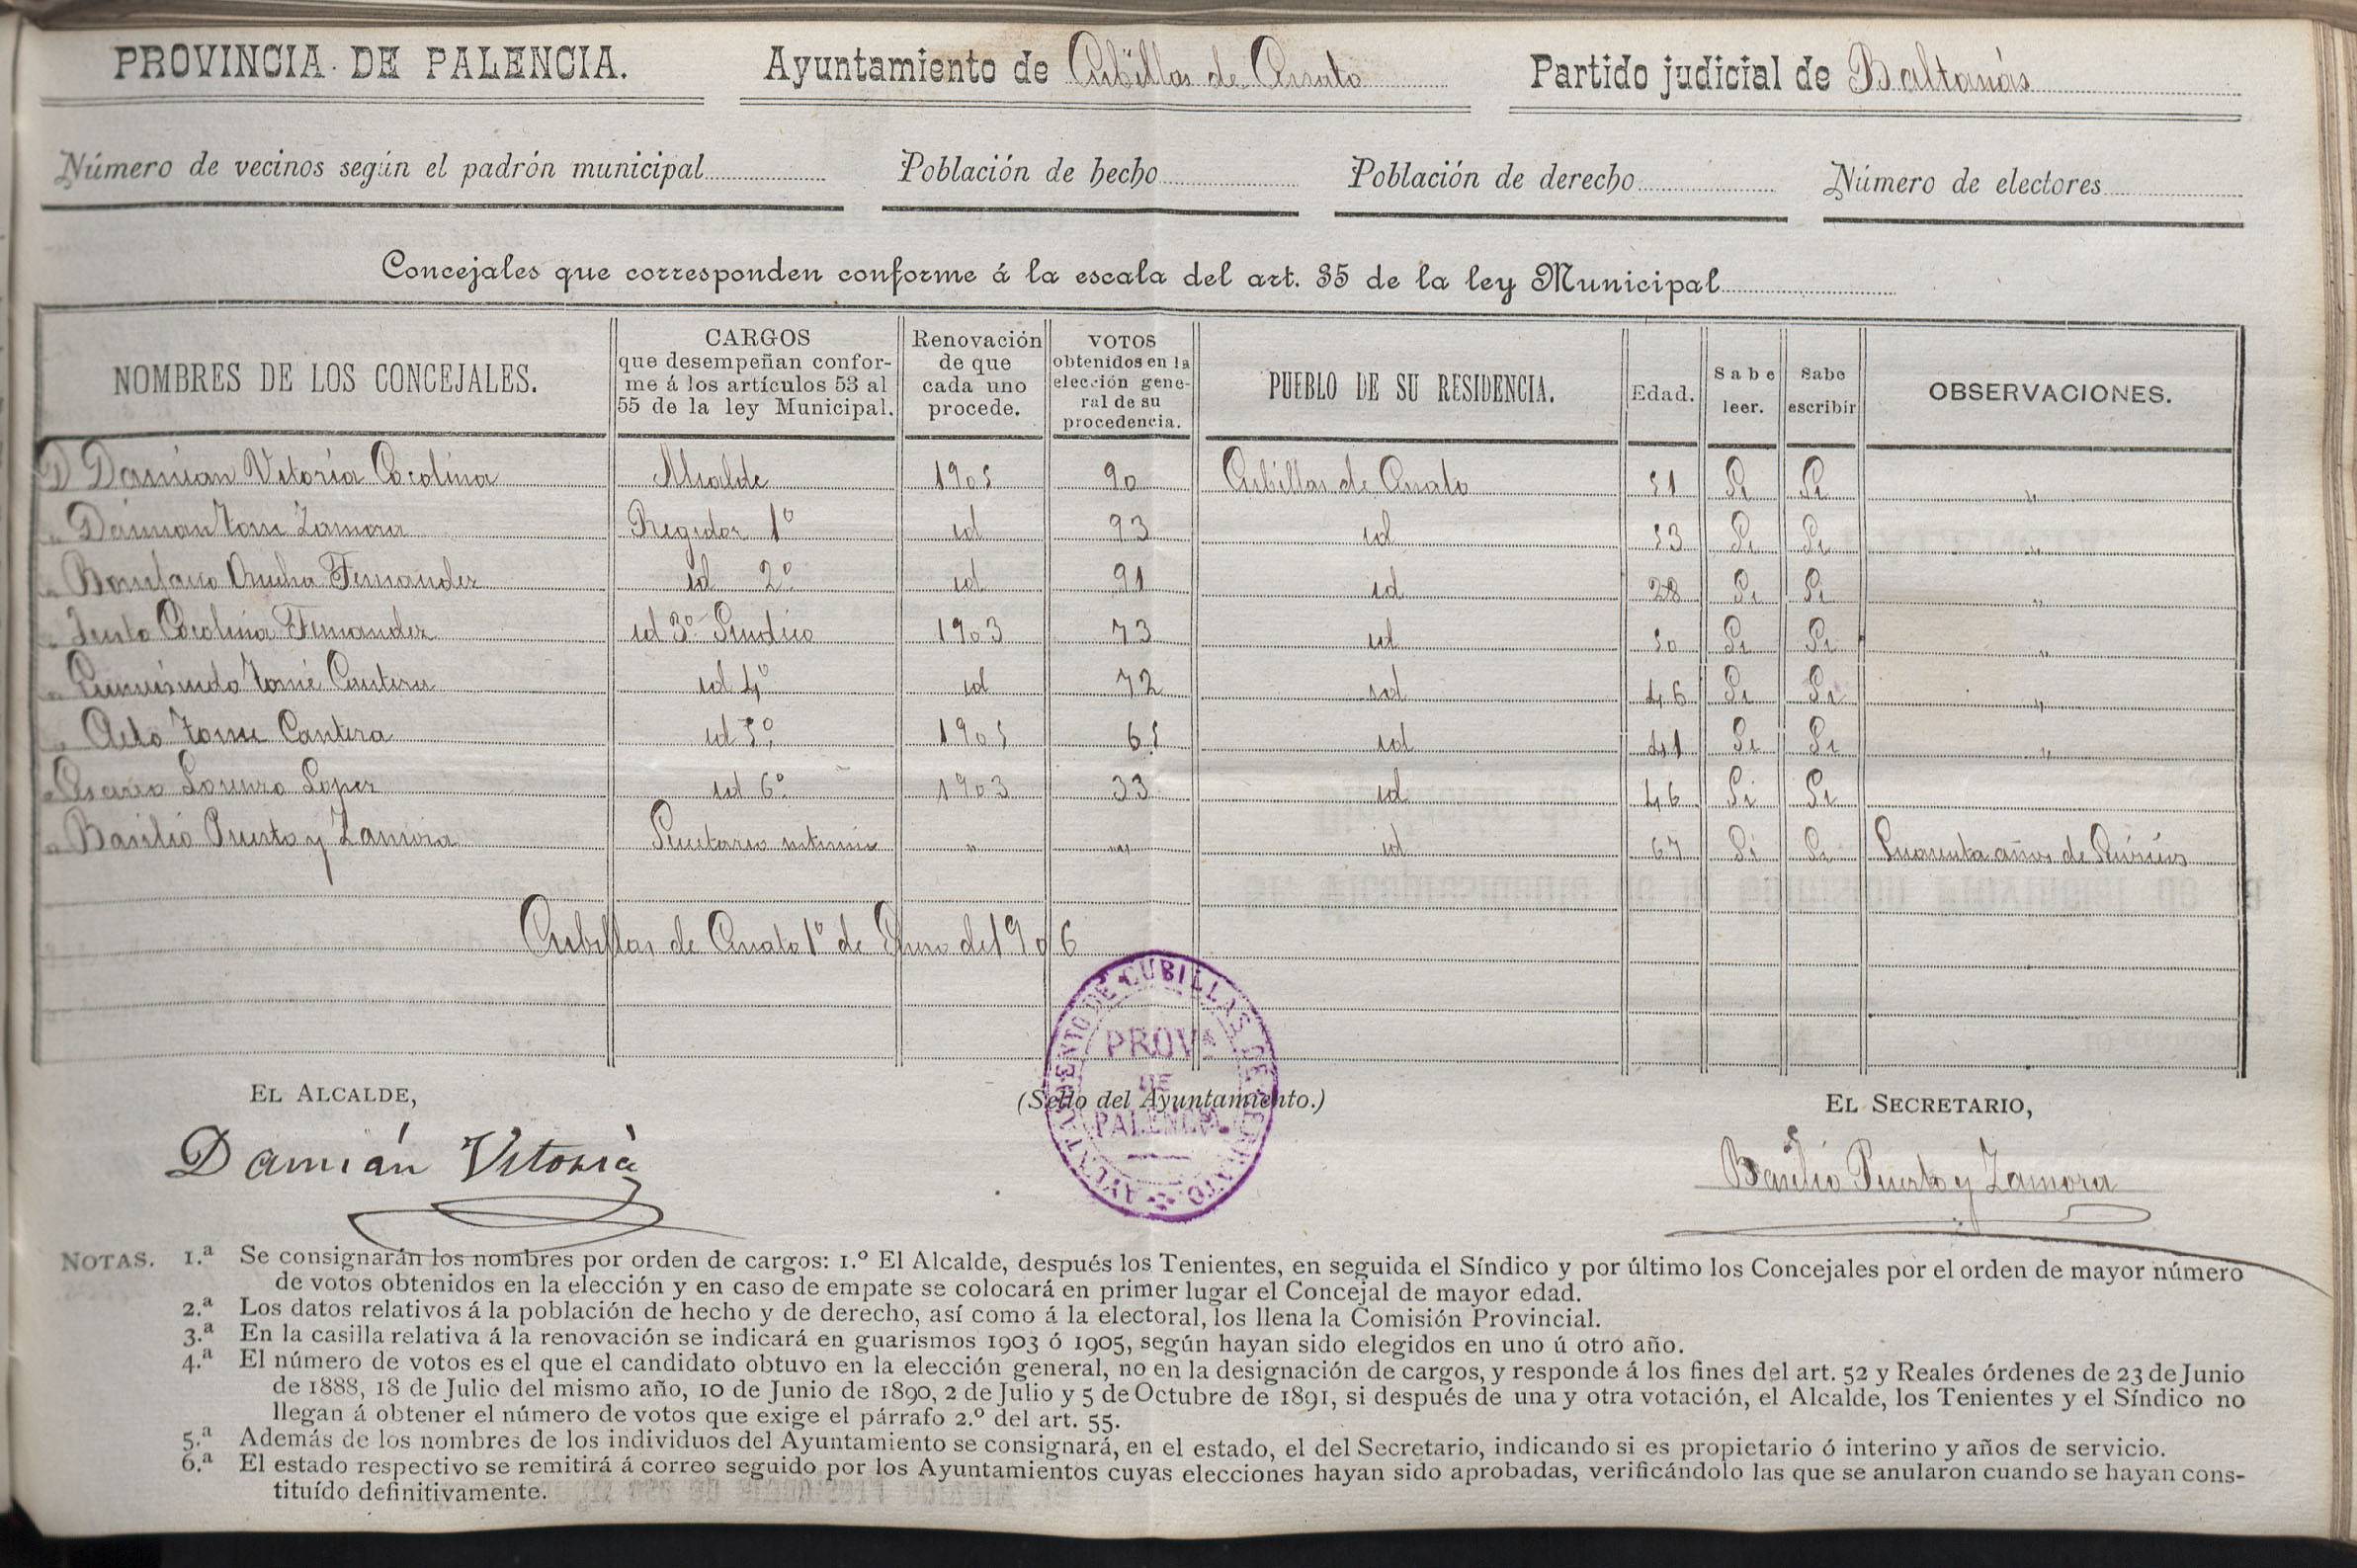 PROVINCIA DE PALENCIA. Ayuntamiento de Cubillas de Cerrato Partido judicial de Baltanás
Número de vecinos según el padrón municipal Población de hecho Población de derecho Número de electores
Concejales que corresponden conforme á la escala del art. 35 de la ley Municipal
NOMBRES DE LOS CONCEJALES.
CARGOS
que desempeñan confor-
me á los artículos 53 al
55 de la ley Municipal.
Renovación
de que
cada uno
procede.
VOTOS
obtenidos en la
elección gene-
ral de su
procedencia.
PUEBLO DE SU RESIDENCIA.
Edad.
Sabe
leer.
Sabe
escribir
OBSERVACIONES.
D Damian Vitoria Cocolina Alcalde 1905 90 Cubillas de Cerrato 51 Si Si "
" Damian Tome Zamora Regidor 1º id 93 id 53 Si Si "
" Bonifacio Fernandez id 2º id 91 id 28 Si Si "
" Justo Cocolina Fernandez id 3º Sindico 1903 73 id 50 Si Si "
" Gumersindo Tomé Cantera id 4º id 72 id 46 Si Si "
" Acto Tome Cantera id 5º 1905 65 id 41 Si Si "
" Lorenzo Lopez id 6º 1903 33 id 46 Si Si
" Basilio Puerto y Zamora Secretario interino " " id 67 Si Si Cuarenta años de Servicios
Cubillas de Cerrato 1º de Enero de 1906
AYUNTAMIENTO DE CUBILLAS DE CERRATO
PROVª
DE
PALENCIA
EL ALCALDE, (Sello del Ayuntamiento.) EL SECRETARIO,
Damián Vitoria Basilio Puerto y Zamora
NOTAS. 1.ª Se consignarán los nombres por orden de cargos: 1.º El Alcalde, después los Tenientes, en seguida el Síndico y por último los Concejales por el orden de mayor número
de votos obtenidos en la elección y en caso de empate se colocará en primer lugar el Concejal de mayor edad.
2.ª Los datos relativos á la población de hecho y de derecho, así como á la electoral, los llena la Comisión Provincial.
3.ª En la casilla relativa á la renovación se indicará en guarismos 1903 ó 1905, según hayan sido elegidos en uno ú otro año.
4.ª El número de votos es el que el candidato obtuvo en la elección general, no en la designación de cargos, y responde á los fines del art. 52 y Reales órdenes de 23 de Junio
de 1888, 18 de Julio del mismo año, 10 de Junio de 1890, 2 de Julio y 5 de Octubre de 1891, si después de una y otra votación, el Alcalde, los Tenientes y el Síndico no
llegan á obtener el número de votos que exige el párrafo 2.º del art. 55.
5.ª Además de los nombres de los individuos del Ayuntamiento se consignará, en el estado, el del Secretario, indicando si es propietario ó interino y años de servicio.
6.ª El estado respectivo se remitirá á correo seguido por los Ayuntamientos cuyas elecciones hayan sido aprobadas, verificándolo las que se anularon cuando se hayan cons-
tituído definitivamente.